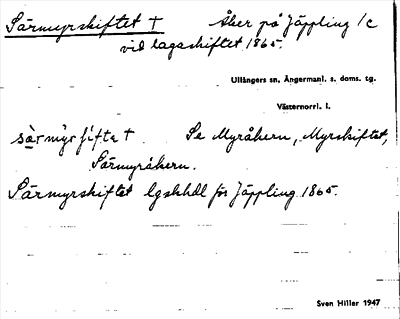 Särmyrskiftet † Åker på Jäppling 1c
vid lagaskiftet 1865.
Ullångers sn, Ångermanl. s. doms. tg.
Västernorrl. l.
Se Myråkern, Myrskiftet,
Särmyråkern.
Särmyrskiftet lgskhdl för Jäppling 1865.
Sven Hiller 1947